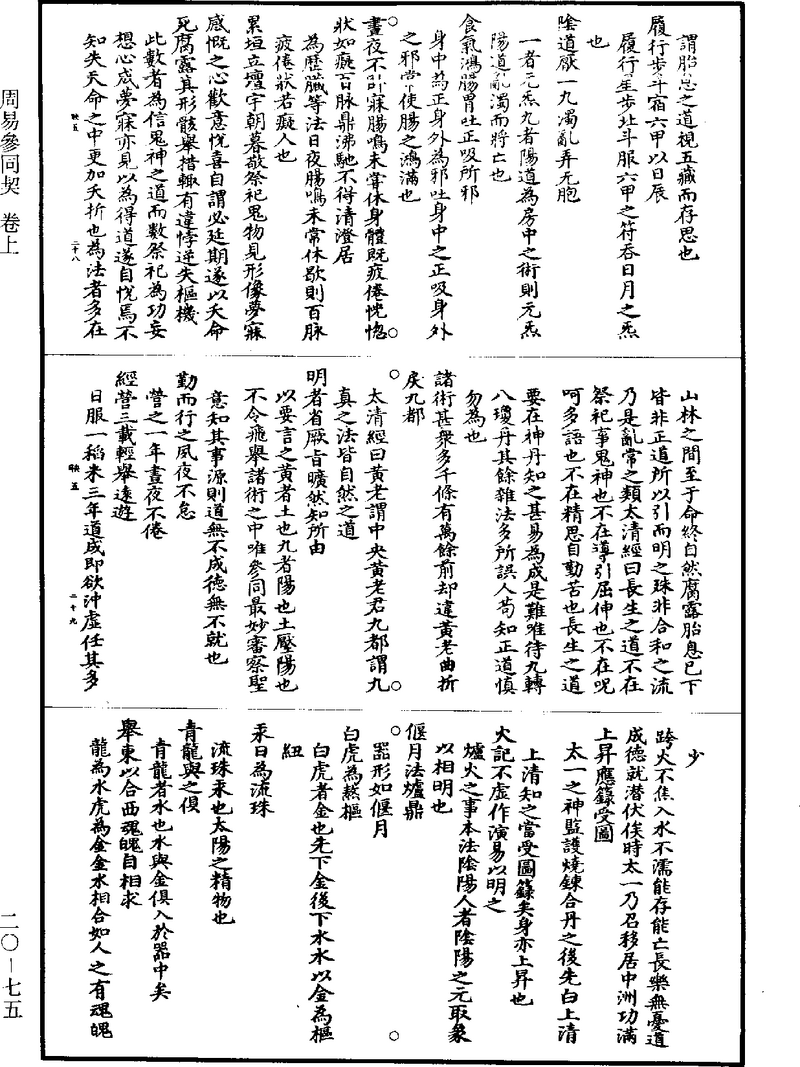 謂胎息之道視五藏而存思也
履行步斗宿六甲以日辰
履行星步北斗服六甲之符吞日月之炁
也
陰道厭一九濁亂弄元胞
一者元炁九者陽道為房中之術則元炁
陽道亂濁而將亡也
食氣鴻腸胃吐正吸所邪
身中為正身外為邪吐身中之正吸身外
之邪常使腸之鴻滿也
晝夜不卧寐腸鳴未甞休身體既疲倦恍惚
狀如癡百脉鼎沸馳不得清澄居
為歷臟等法日夜腸鳴未常休歇則百脉
疲倦狀若癡人也
累垣立壇宇朝暮敬祭祀鬼物見形像夢寐
感慨之心歡意悅喜自謂必延期遂以夭命
死腐露其形骸舉措輙有違悖逆失樞機
此數者為信鬼神之道而數祭祀為功妄
想心感夢寐亦見以為得道遂自悅焉不
知失天命之中更加夭折也為法者多在
映五
二十八
山林之間至于命終自然腐露胎息已下
皆非正道所以引而明之殊非合和之流
乃是亂常之類太清經曰長生之道不在
祭祀事鬼神也不在導引屈伸也不在呪
呵多語也不在精思自勤苦也長生之道
要在神丹知之甚易為成是難唯待九轉
八瓊丹其餘雜法多所誤人苟知正道慎
勿為也
諸術甚衆多千條有萬餘前却違黃老曲折
戾九都
太清經曰黃老謂中央黃老君九都謂九
真之法皆自然之道
明者省厥旨曠然知所由
以要言之黃者土也九者陽也土壓陽也
不令飛舉諸術之中唯參同最妙審察聖
意知其事源則道無不成德無不就也
勤而行之夙夜不怠
營之一年晝夜不倦
經營三載輕舉遠遊
日服一稻米三年道成即欲沖虛任其多
映五
二十九
少
跨火不焦入水不濡能存能亡長樂無憂道
成德就潜伏俟時太一乃召移居中洲功滿
上昇應籙受圖
太一之神監護燒鍊合丹之後先白上清
上清知之當受圖籙矣身亦上昇也
火記不虛作演易以明之
爐火之事本法陰陽人者陰陽之元取象
以相明也
偃月法爐鼎
器形如偃月
白虎為熬樞
白虎者金也先下金後下水水以金為樞
紐
汞日為流珠
流珠汞也太陽之精物也
青龍與之俱
青龍者水也水與金俱入於器中矣
舉東以合西魂魄自相求
龍為水虎為金金水相合如人之有魂魄
周易參同契 卷上
二〇－七五